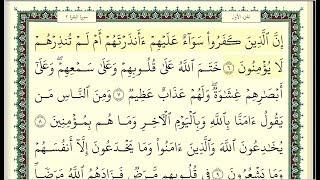 الجزء الأول سورة البقرة ٢
إِنَّ ٱلَّذِينَ كَفَرُوا۟ سَوَآءٌ عَلَيْهِمْ ءَأَنذَرْتَهُمْ أَمْ لَمْ تُنذِرْهُمْ
لَا يُؤْمِنُونَ ٦ خَتَمَ ٱللَّهُ عَلَىٰ قُلُوبِهِمْ وَعَلَىٰ سَمْعِهِمْ وَعَلَىٰٓ
أَبْصَٰرِهِمْ غِشَٰوَةٌ وَلَهُمْ عَذَابٌ عَظِيمٌ ٧ وَمِنَ ٱلنَّاسِ مَن
يَقُولُ ءَامَنَّا بِٱللَّهِ وَبِٱلْيَوْمِ ٱلْءَاخِرِ وَمَا هُم بِمُؤْمِنِينَ ٨
يُخَٰدِعُونَ ٱللَّهَ وَٱلَّذِينَ ءَامَنُوا۟ وَمَا يَخْدَعُونَ إِلَّآ أَنفُسَهُمْ
وَمَا يَشْعُرُونَ ٩ فِى قُلُوبِهِم مَّرَضٌ فَزَادَهُمُ ٱللَّهُ مَرَضًا